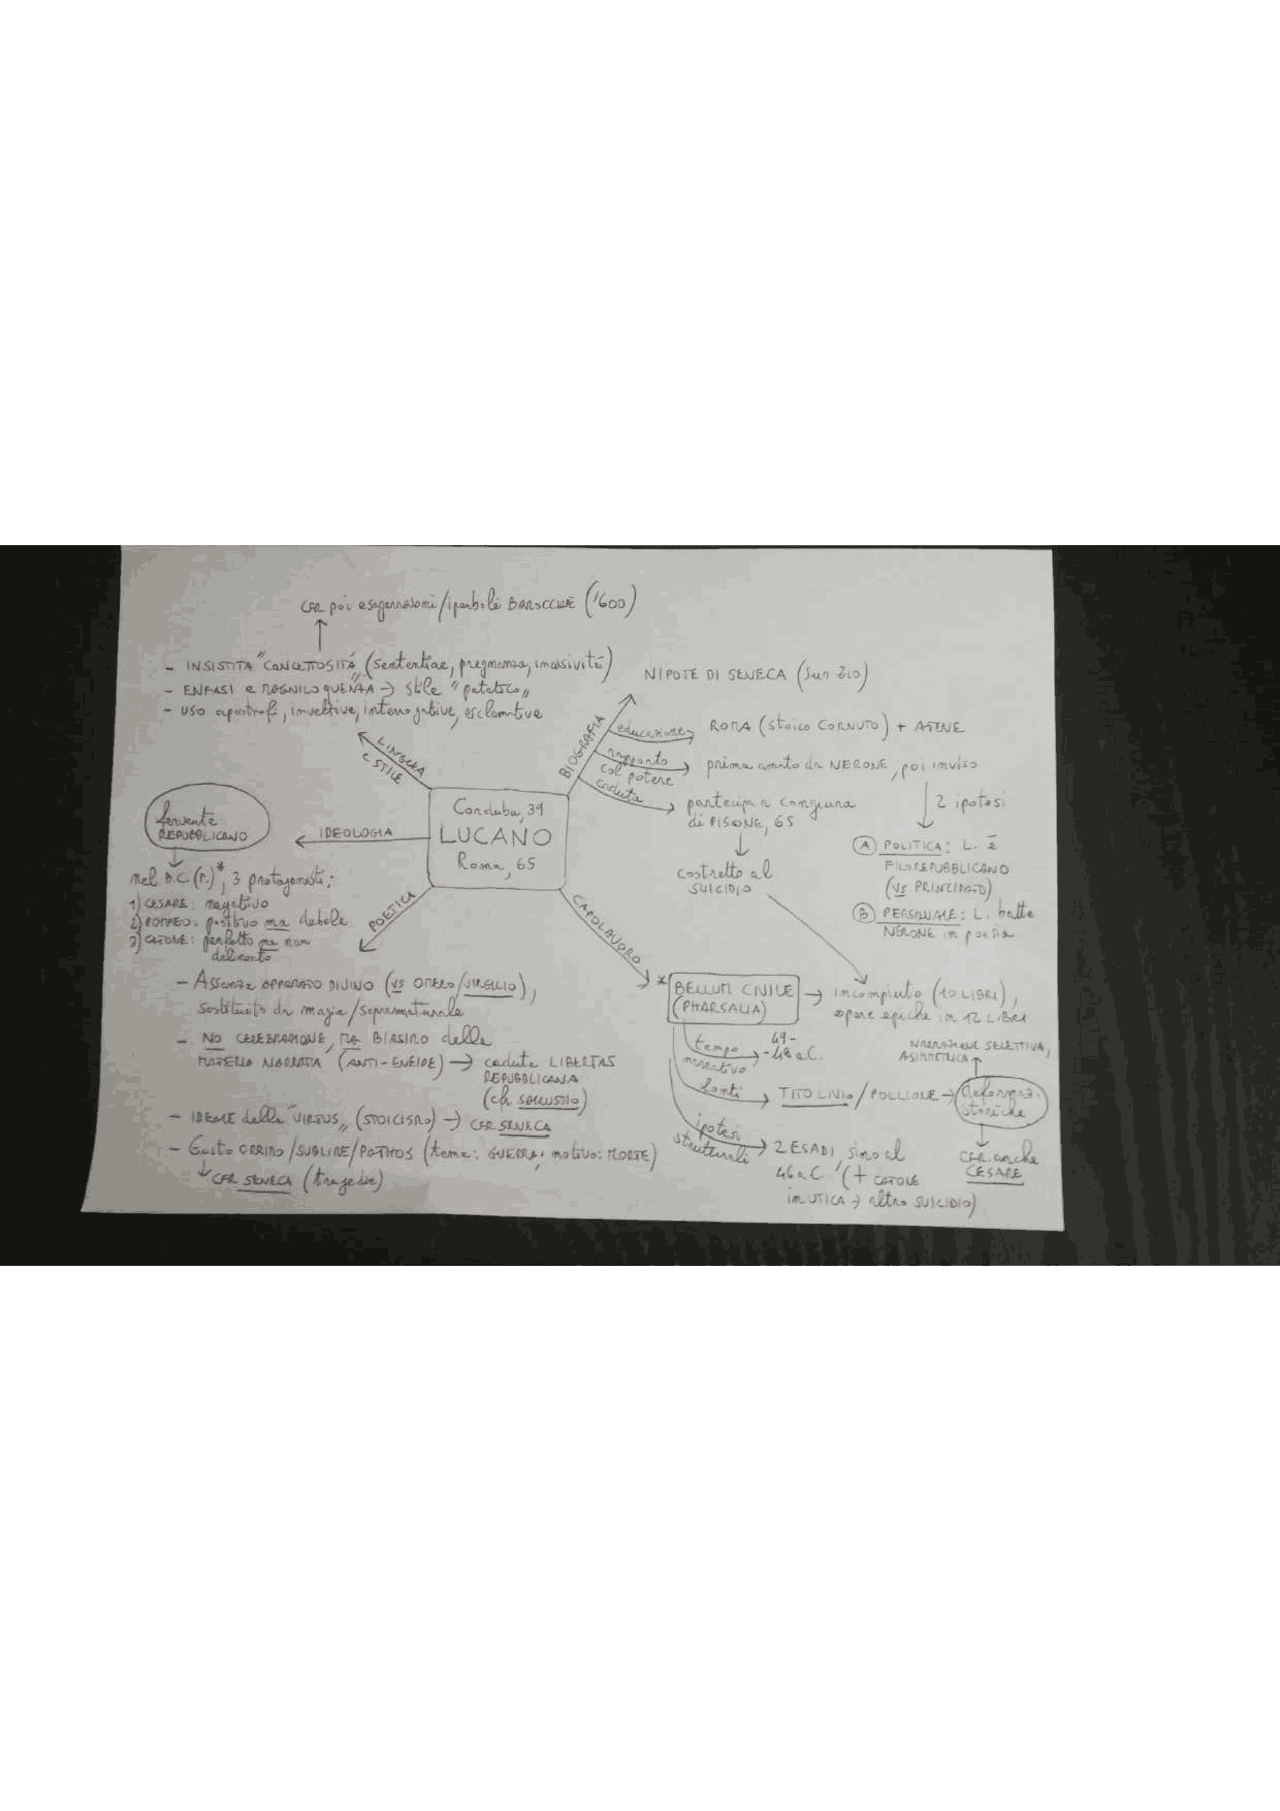 CFR poi esagerazioni/iperboli BAROCCHE ('600)
- INSISTITA "CONCETTOSITÀ" (sententiae, pregnanza, incisività)
- ENFASI e MAGNILOQUENZA → stile "patetico"
- USO apostrofi, invettive, interrogative, esclamative
LINGUA
e STILE
NIPOTE DI SENECA (suo zio)
BIOGRAFIA
educazione → ROMA (stoico CORNUTO) + ATENE
rapporto
col potere → prima amato da NERONE, poi inviso
2 ipotesi
A POLITICA: L. è
FILOREPUBBLICANO
(VS PRINCIPATO)
B PERSONALE: L. batte
NERONE in poesia
caduta → partecipa a congiura
di PISONE, 65
costretto al
SUICIDIO
Corduba, 39
LUCANO
Roma, 65
IDEOLOGIA
fervente
REPUBBLICANO
nel B.C. *, 3 protagonisti:
1) CESARE: negativo
2) POMPEO: positivo ma debole
3) CATONE: perfetto ma non
POETICA
- Assenza APPARATO DIVINO (VS OMERO/VIRGILIO),
sostituito da magia/soprannaturale
- NO CELEBRAZIONE, MA BIASIMO della
MATERIA NARRATA (ANTI-ENEIDE) → caduta LIBERTAS
REPUBBLICANA
(cfr SALLUSTIO)
- IDEALE della "VIRTUS" (STOICISMO) → CFR SENECA
- Gusto ORRIDO/SUBLIME/PATHOS (tema: GUERRA; motivo: MORTE)
CFR SENECA (tragedie)
CAPOLAVORO
* BELLUM CIVILE
(PHARSALIA)
→ incompiuto (10 LIBRI),
opere epiche in 12 LIBRI
tempo
narrativo → 49-
-48 a.C.
fonti → TITO LIVIO / POLLIONE → deformaz.
storiche
NARRAZIONE SELETTIVA,
ASIMMETRICA
CFR. anche
CESARE
ipotesi
strutturali → 2 ESADI, sino al
46 a.C. († CATONE
in UTICA → altro SUICIDIO)